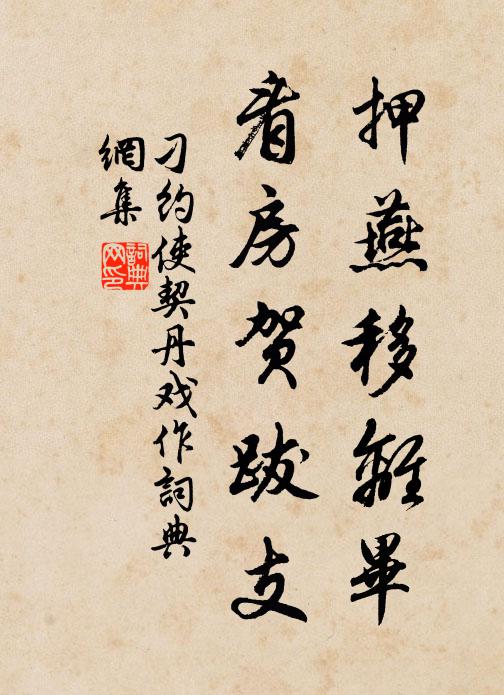 押燕移離畢
看房贺跋支
刁约使契丹戏作詞典
網集
詞典网印